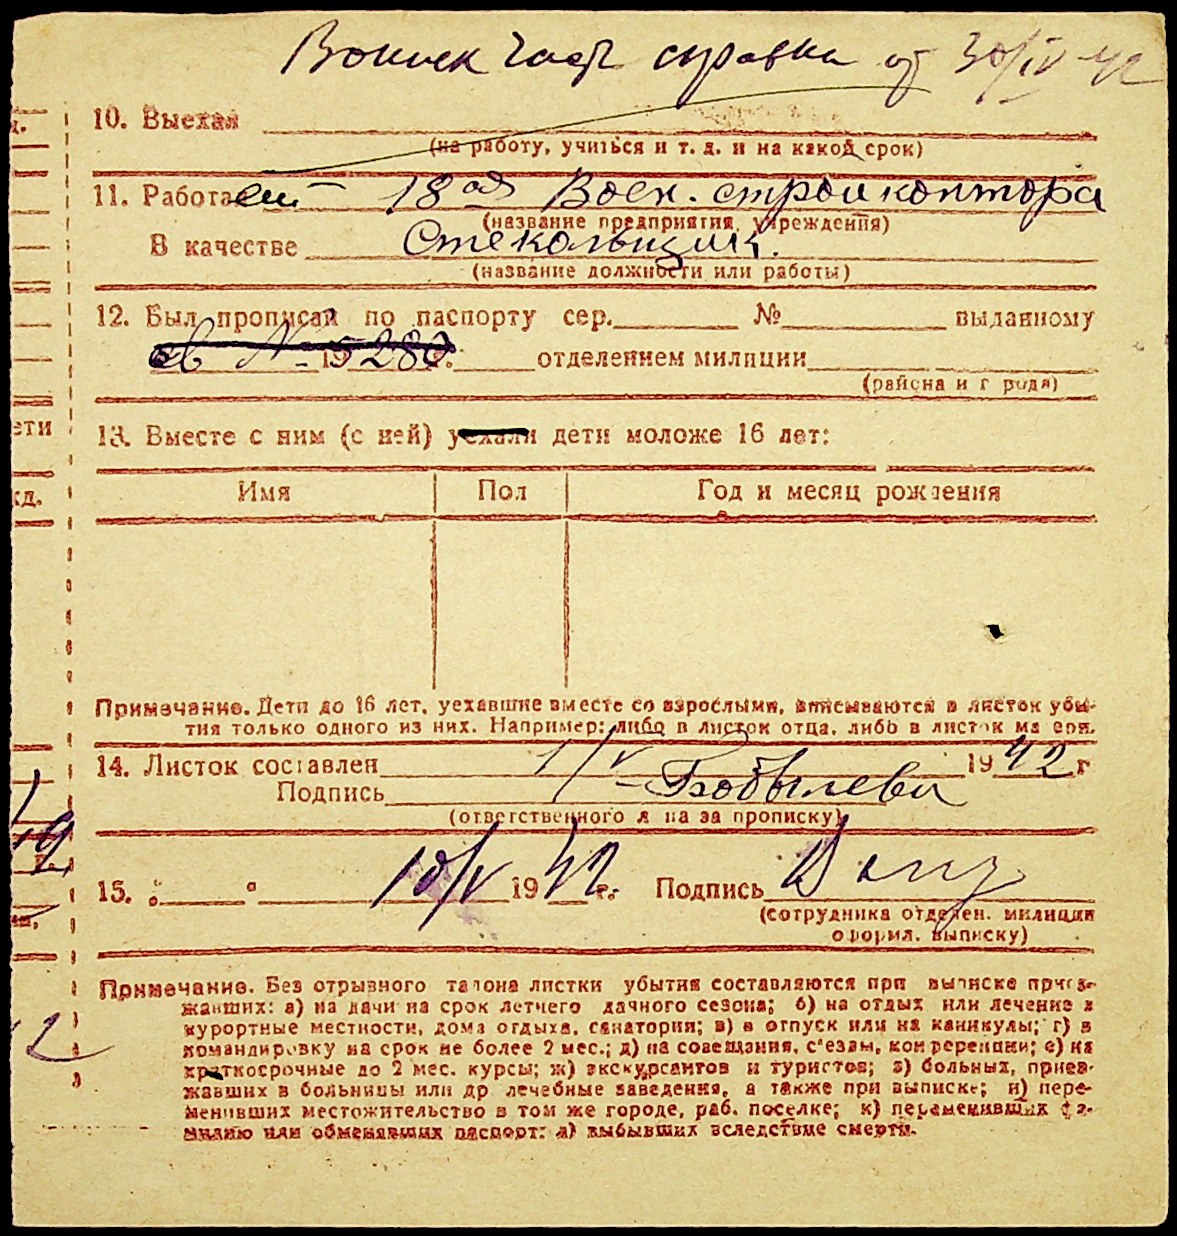 Воинск часть справка от 30/IV-42
10. Выехал
(на работу, учиться и т. д. и на какой срок)
11. Работает - 18ая Воен. строй контора
(название предприятия, учреждения)
В качестве Стекольщик.
(название должности или работы)
12. Был прописан по паспорту сер. № выданному
св № 15280 г. отделением милиции
(района и города)
13. Вместе с ним (с ней) уехали дети моложе 16 лет:
Имя Пол Год и месяц рождения
Примечание. Дети до 16 лет, уехавшие вместе со взрослыми, вписываются в листок убы-
тия только одного из них. Например: либо в листок отца, либо в листок матери.
14. Листок составлен 1/V 1942 г
Подпись Бобылева
(ответственного лица за прописку)
15. 10/V 1942 г. Подпись
(сотрудника отделен. милиции
оформл. выписку)
Примечание. Без отрывного талона листки убытия составляются при выписке приез-
жавших: а) на дачи на срок летнего дачного сезона; б) на отдых или лечение в
курортные местности, дома отдыха, санатории; в) в отпуск или на каникулы; г) в
командировку на срок не более 2 мес.; д) на совещания, с'езды, конференции; е) на
краткосрочные до 2 мес. курсы; ж) экскурсантов и туристов; з) больных, приез-
жавших в больницы или др лечебные заведения, а также при выписке; и) пере-
менивших местожительство в том же городе, раб. поселке; к) переменивших фа-
милию или обменявших паспорт; л) выбывших вследствие смерти.